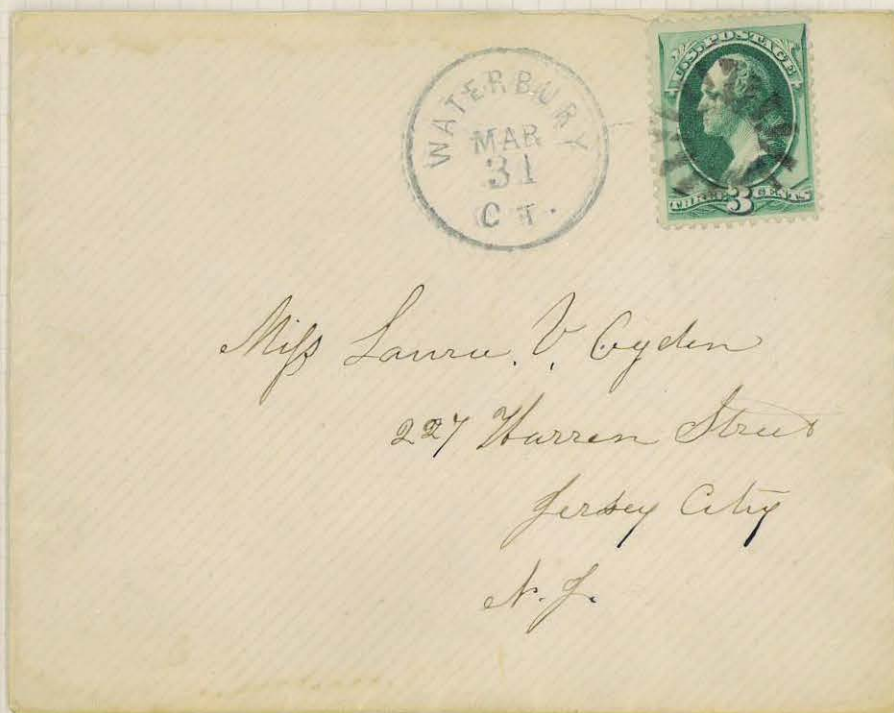 WATERBURY
MAR
31
CT.
U.S. POSTAGE
THREE 3 CENTS
Miss Laura V. Ogden
227 Warren Street
Jersey City
N. J.